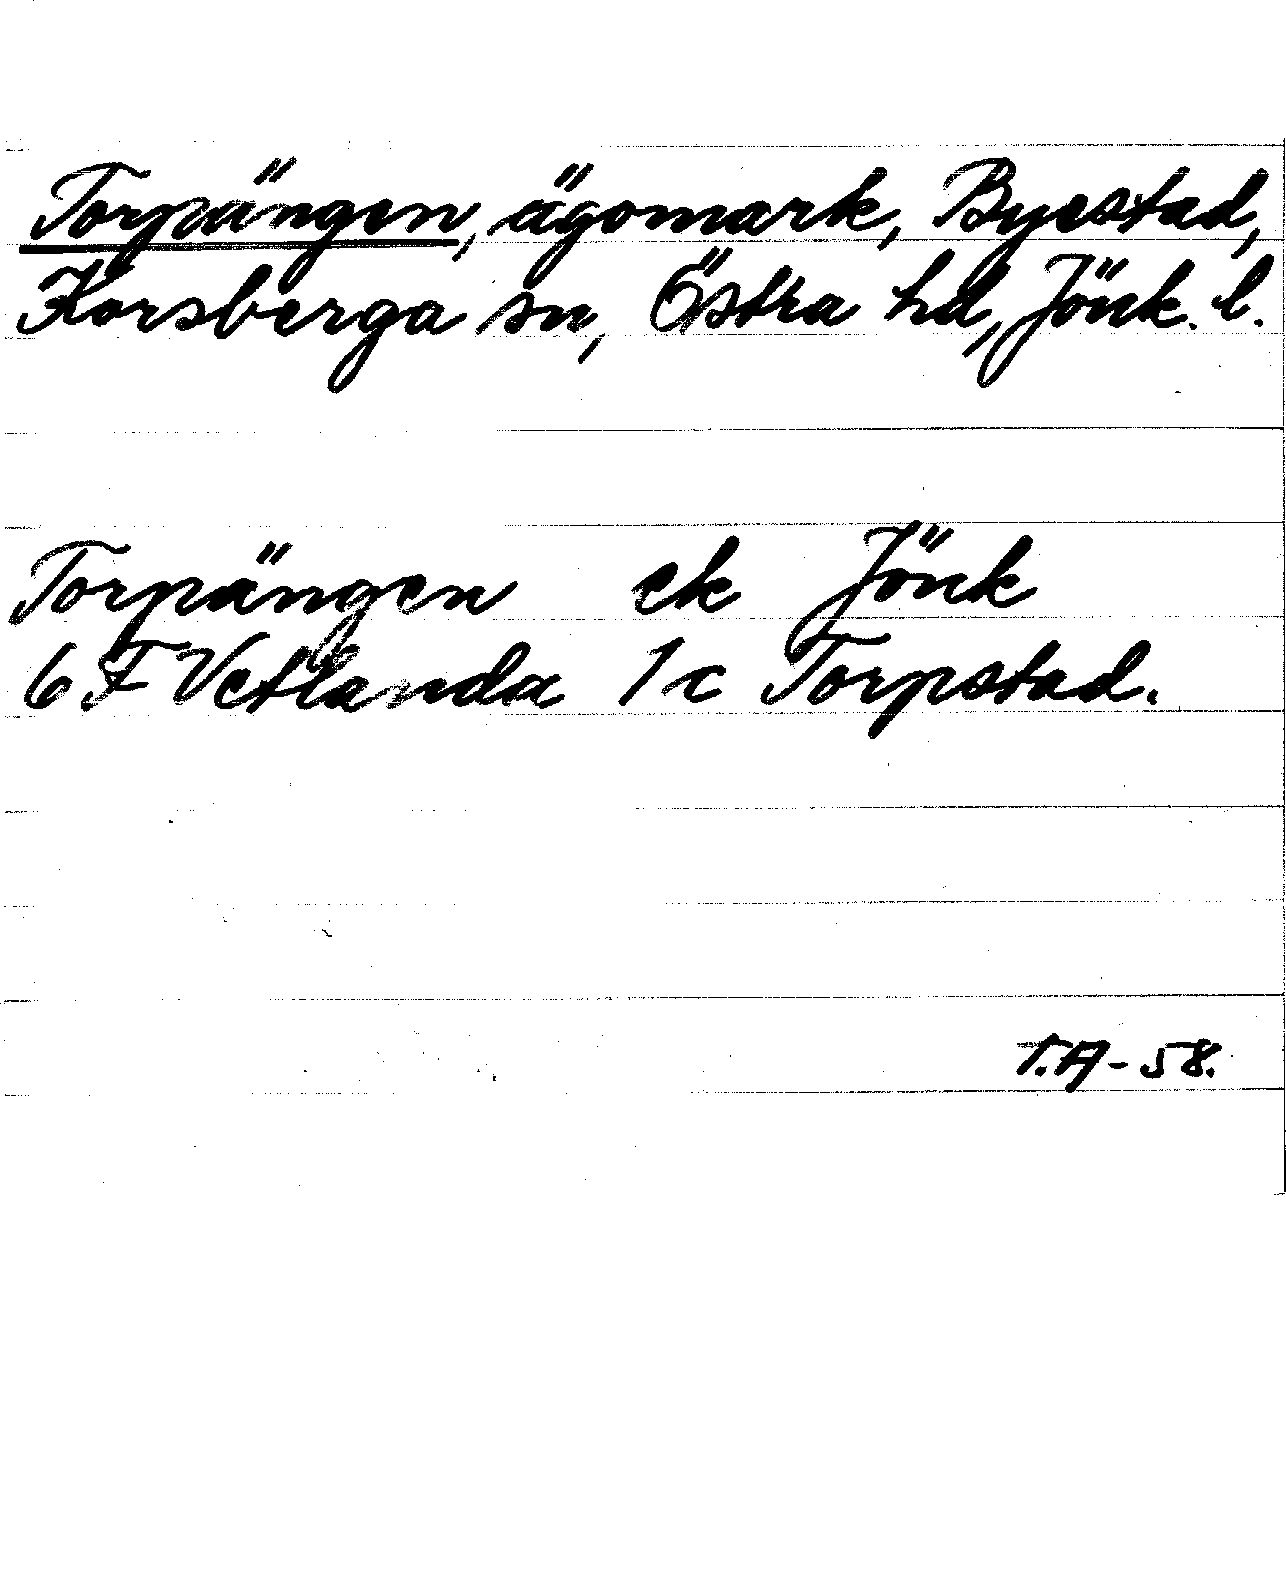 Torpängen, ägomark, Byestad,
Korsberga sn, Östra hd, Jönk. l.
Torpängen ek Jönk
6 F Vetlanda 1 c Torpstad.
T.A-58.